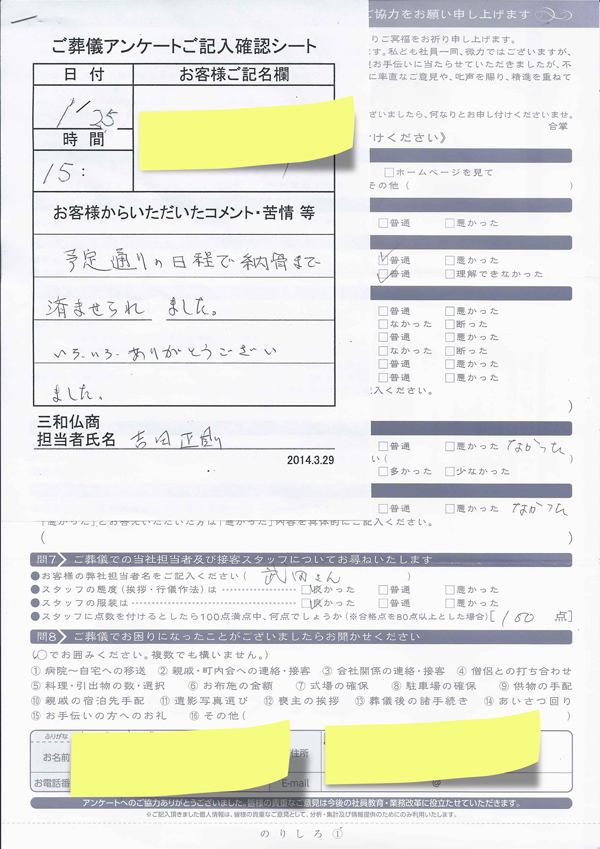 ご協力をお願い申し上げます
ご葬儀アンケートご記入確認シート
日 付
お客様ご記名欄
1/25
時 間
15:
お客様からいただいたコメント・苦情 等
予定通りの日程で納骨まで
済ませられました。
いろいろありがとうござい
ました。
三和仏商
担当者氏名 吉田正則
2014.3.29
りご冥福をお祈り申し上げます。
す。私ども社員一同、微力ではございますが、
お手伝いに当たらせていただきましたが、不
に率直なご意見や、叱声を賜り、精進を重ねて
ざいましたら、何なりとお申し付けくださいませ。
合掌
けください》
□ホームページを見て
その他（ ）
□普通 □悪かった
□普通 □悪かった
□普通 □理解できなかった
□普通 □悪かった
□なかった □断った
□普通 □悪かった
□なかった □断った
□普通 □悪かった
□普通 □悪かった
記入ください。
)
□普通 □悪かった なかった
い( )
□多かった □少なかった
□普通 □悪かった なかった
「悪かった」とお答えいただいた方は「悪かった」内容を具体的にご記入ください。
( )
問7 ご葬儀での当社担当者及び接客スタッフについてお尋ねいたします
●お客様の弊社担当者名をご記入ください（ 武内さん ）
●スタッフの態度（挨拶・行儀作法）は □良かった □普通 □悪かった
●スタッフの服装は □良かった □普通 □悪かった
●スタッフに点数を付けるとしたら100点満点中、何点でしょうか（※合格点を80点以上とした場合）[ 100 点]
問8 ご葬儀でお困りになったことがございましたらお聞かせください
(○でお囲みください。複数でも構いません。)
①病院～自宅への移送 ②親戚・町内会への連絡・接客 ③会社関係の連絡・接客 ④僧侶との打ち合わせ
⑤料理・引出物の数・選択 ⑥お布施の金額 ⑦式場の確保 ⑧駐車場の確保 ⑨供物の手配
⑩親戚の宿泊先手配 ⑪遺影写真選び ⑫喪主の挨拶 ⑬葬儀後の諸手続き ⑭あいさつ回り
⑮お手伝いの方へのお礼 ⑯その他( )
ふりがな
お名前
住所
お電話番
E-mail @
アンケートへのご協力ありがとうございました。皆様の貴重なご意見は今後の社員教育・業務改革に役立たせていただきます。
※ご記入頂きました個人情報は、皆様の貴重なご意見として、分析・集計及び情報提供のためにのみ利用いたします。
のりしろ①